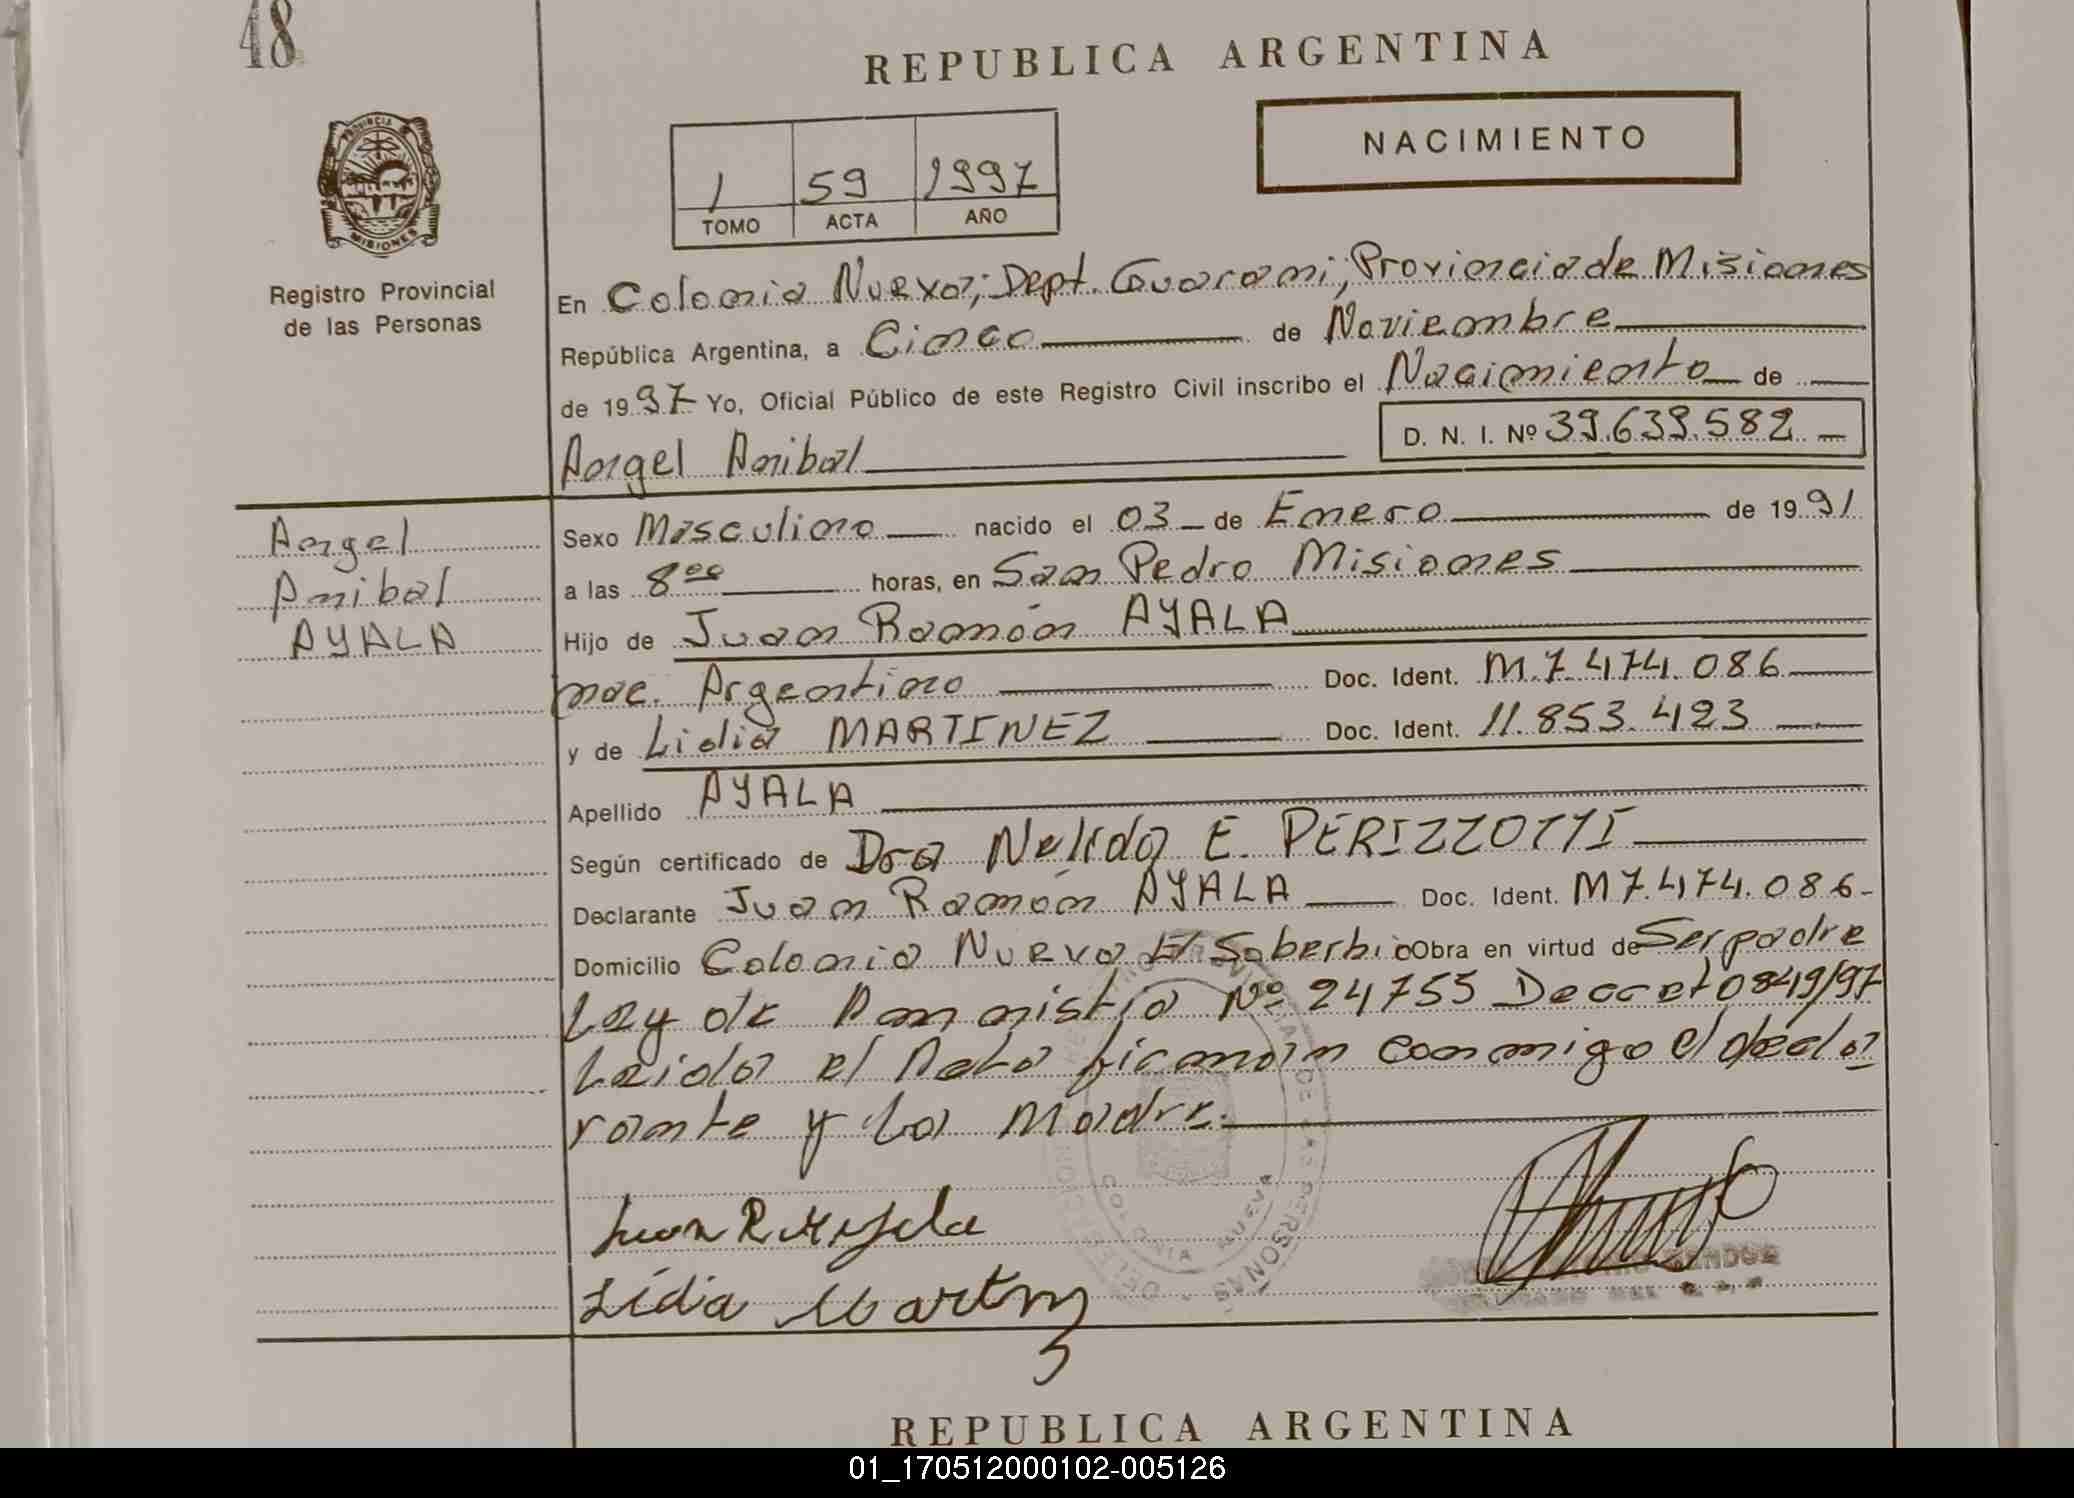 48
REPUBLICA ARGENTINA
NACIMIENTO
1 59 1997
TOMO ACTA AÑO
PROVINCIA
MISIONES
Registro Provincial
de las Personas
En Colonia Nueva; Dept. Guarani; Provincia de Misiones
República Argentina, a Cinco de Noviembre
de 1997 Yo, Oficial Público de este Registro Civil inscribo el Nacimiento de
D. N. I. Nº 39.639.582
Angel Anibal
Angel
Anibal
AYALA
Sexo Masculino nacido el 03 de Enero de 1991
a las 8 00 horas, en San Pedro Misiones
Hijo de Juan Ramón AYALA
nac. Argentino Doc. Ident. M.7.474.086
y de Lidia MARTINEZ Doc. Ident. 11.853.423
Apellido AYALA
Según certificado de Dra Nelida E. PERIZZOTTI
Declarante Juan Ramón AYALA Doc. Ident. M7.474.086-
Domicilio Colonia Nueva El Soberbio Obra en virtud de Ser padre
Ley de Amnistia Nº 24755 Decreto 849/97
Leida el Acta firman conmigo el decla
rante y la Madre.
Juan R Ayala
Lidia Martinez
COLONIA NUEVA
REPUBLICA ARGENTINA
01_170512000102-005126